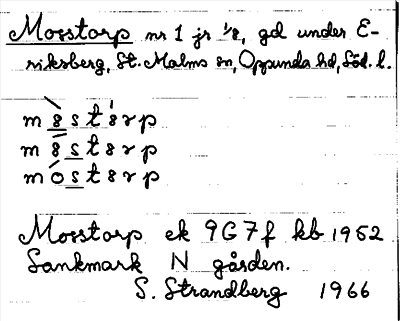 Mosstorp nr 1 jr 1/8, gd under E-
riksberg, St. Malms sn, Oppunda hd, Söd. l.
Mosstorp ek 9G7f kb 1952
Sankmark N gården.
S. Strandberg 1966